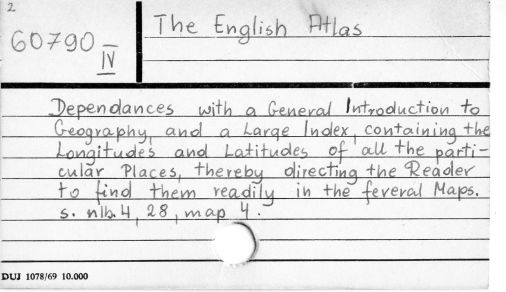 2
60790
IV
The English Atlas
Dependances with a General Introduction to
Geography, and a Large Index, containing the
Longitudes and Latitudes of all the parti-
cular Places, thereby directing the Reader
to find them readily in the feveral Maps.
s. nlb. 4, 28, map 4.
DUJ 1078/69 10.000